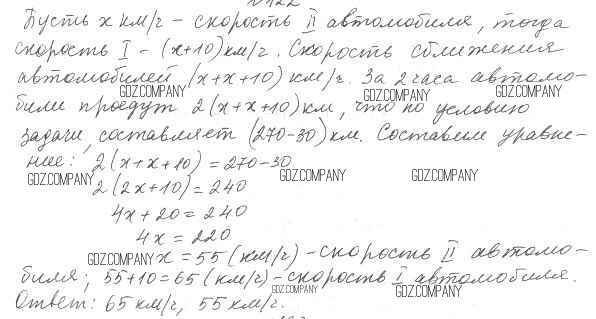 №122
Пусть x км/ч – скорость II автомобиля, тогда
скорость I – (x+10) км/ч. Скорость сближения
автомобилей (x+x+10) км/ч. За 2 часа автомо-
GDZ.COMPANY GDZ.COMPANY GDZ.COMPANY
били проедут 2(x+x+10) км, что по условию
задачи, составляет (270-30) км. Составим уравне-
ние: 2(x+x+10) = 270-30
GDZ.COMPANY GDZ.COMPANY GDZ.COMPANY
2(2x+10) = 240
4x+20 = 240
4x = 220
GDZ.COMPANY x = 55 (км/ч) – скорость II автомо-
биля; 55+10=65 (км/ч) – скорость I автомобиля.
GDZ.COMPANY GDZ.COMPANY
Ответ: 65 км/ч, 55 км/ч.